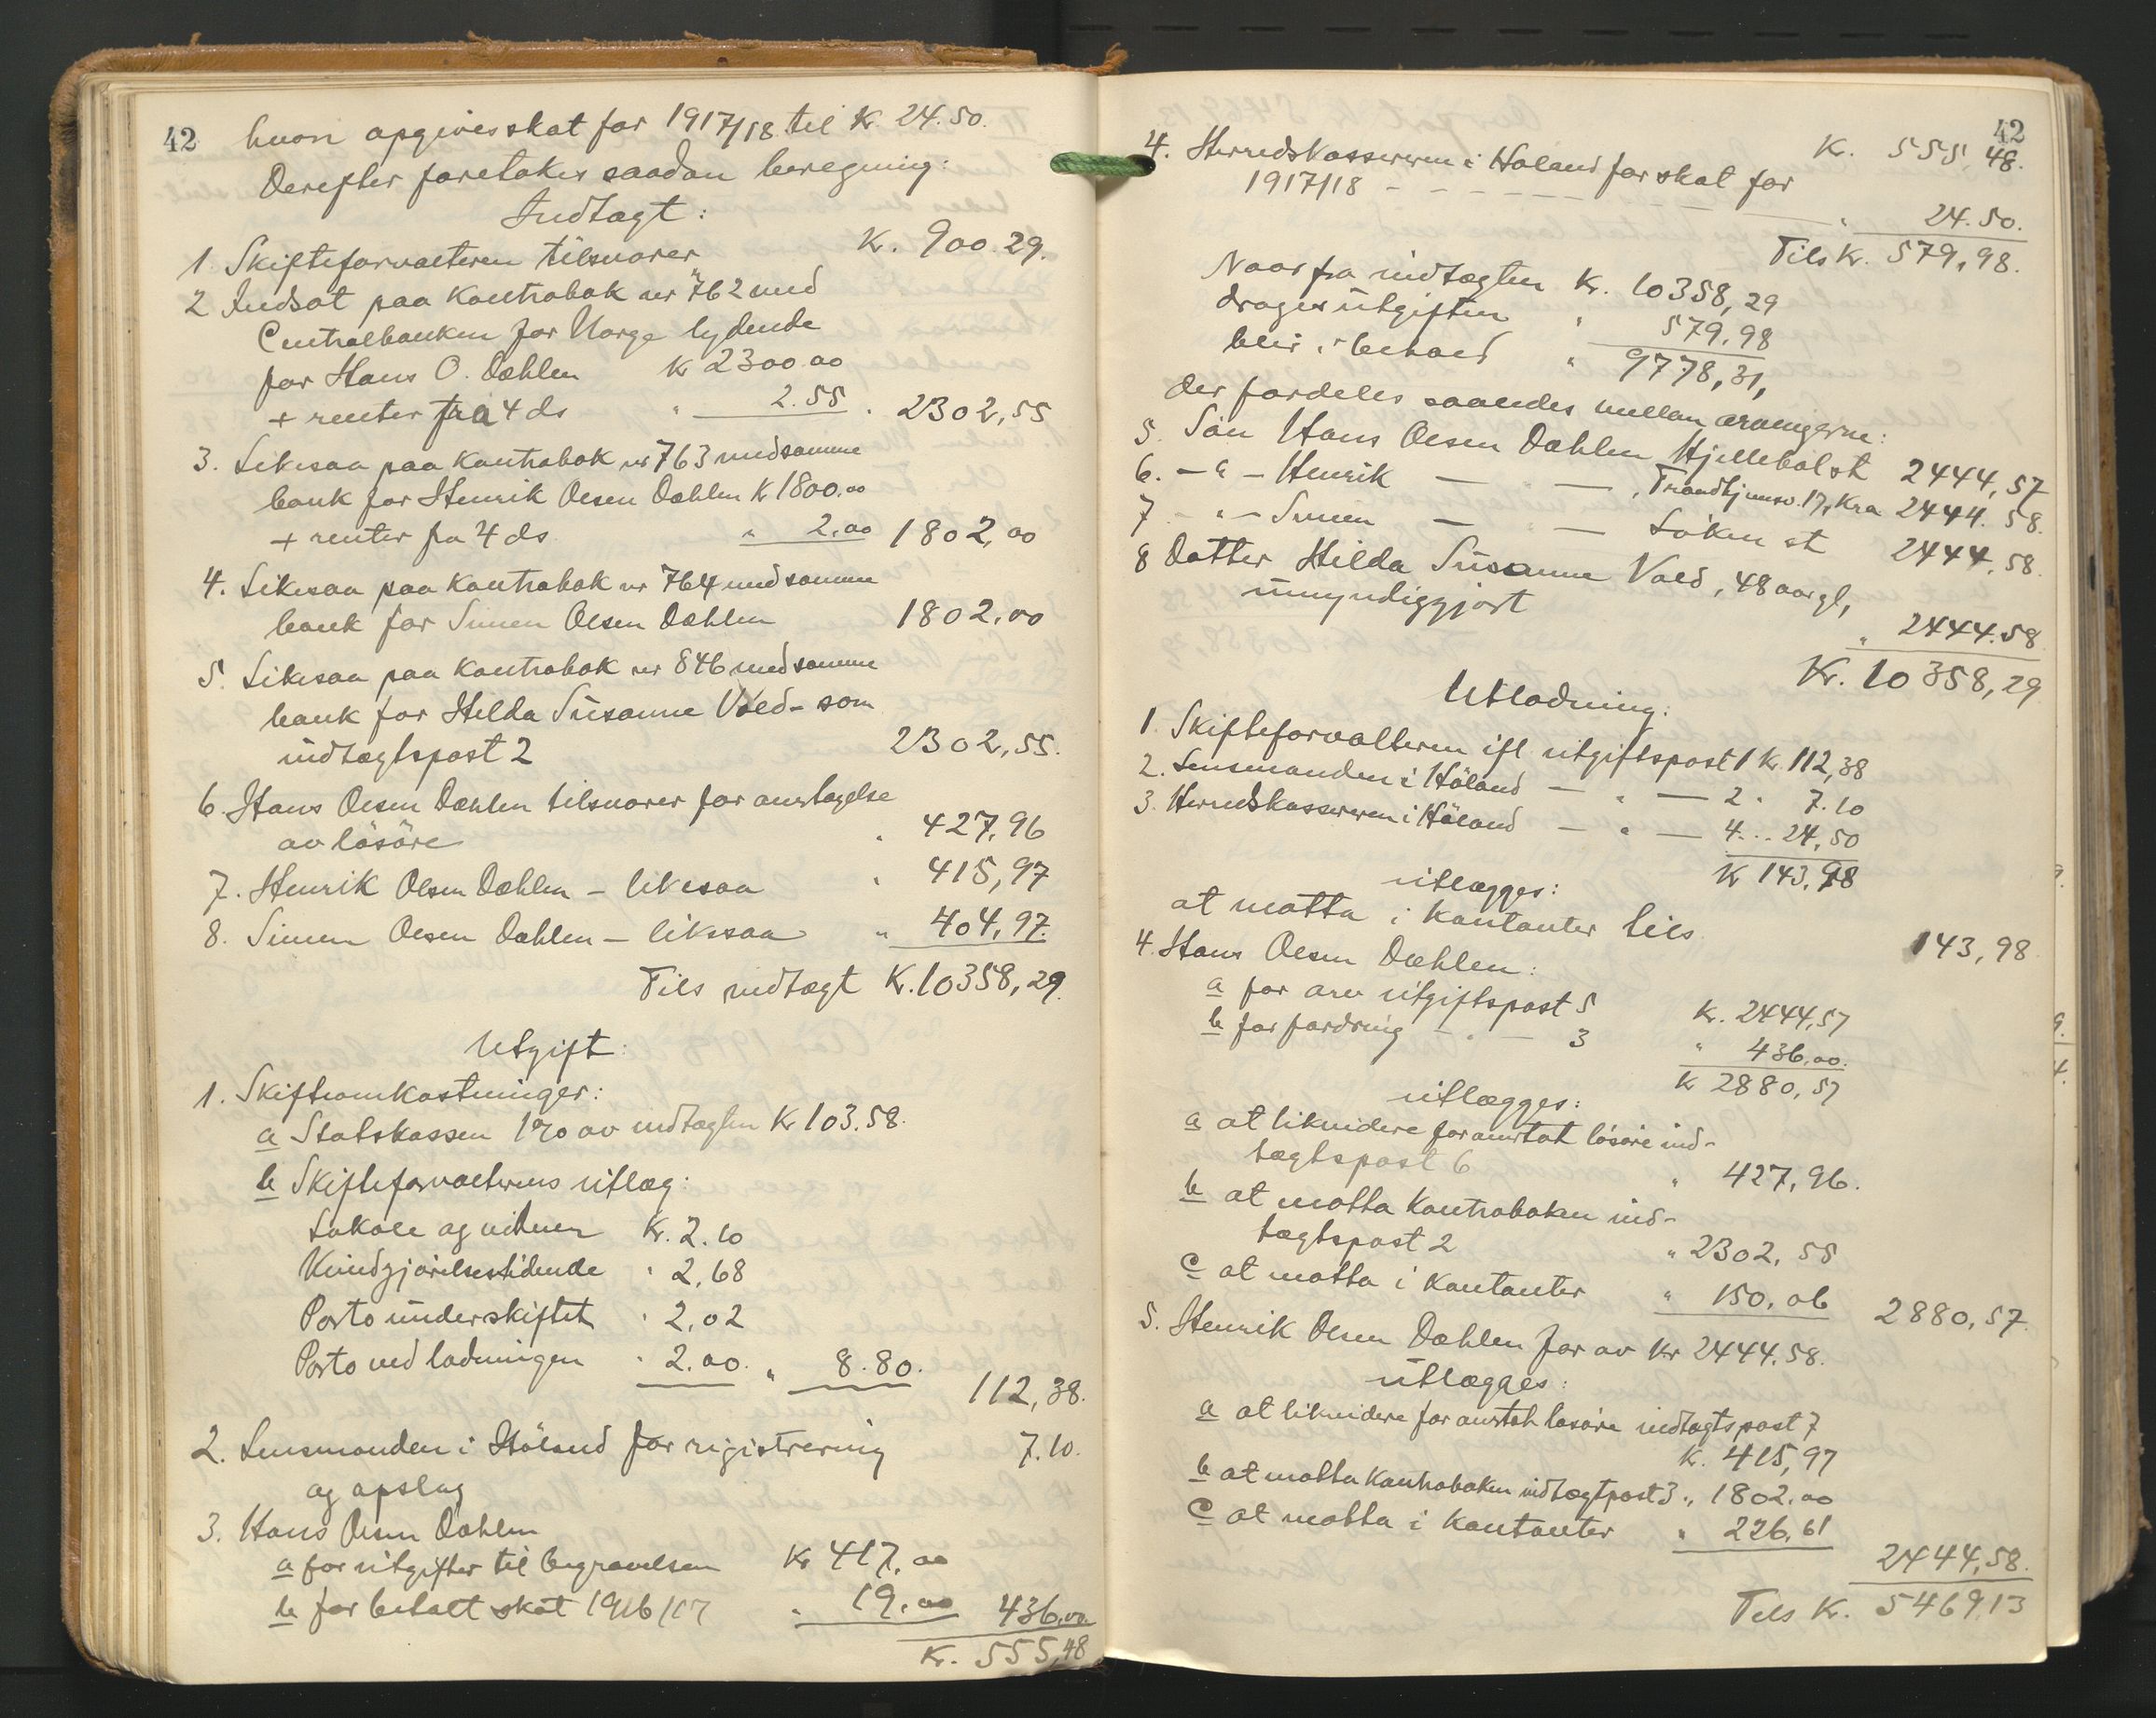 42
hvori opgives skat for 1917/18 til Kr. 24.50.
Derefter foretakes saadan beregning:
Indtægt:
1. Skifteforvalteren tilsvarer K. 900.29.
2 Indsat paa kontrabok nr 762 med
Centralbanken for Norge lydende
for Hans O. Dæhlen K 2300.00
+ renter fra 4 ds " 2.55 " 2302,55
3. Likesaa paa kontrabok nr 763 med samme
bank for Henrik Olsen Dæhlen K 1800.00
+ renter fra 4 ds " 2.00 1802,00
4. Likesaa paa kontrabok nr 764 med samme
bank for Simen Olsen Dæhlen 1802.00
5. Likesaa paa kontrabok nr 846 med samme
bank for Hilda Susanne Vold - som
indtægtspost 2 2302,55.
6. Hans Olsen Dæhlen tilsvarer for overtagelse
av lösöre " 427,96
7. Henrik Olsen Dæhlen - likesaa " 415,97
8. Simen Olsen Dæhlen - likesaa " 404,97.
Tils indtægt K. 10358,29.
Utgift:
1. Skifteomkostninger:
a Statskassen 1% av indtægten Kr 103.58.
b Skifteforvalterens utlæg:
Lokale og vidner K. 2.10
Kundgjörelsestidende " 2,68
Porto under skiftet " 2,02
Porto ved lodningen " 2.00. " 8.80.
112,38.
2. Lensmanden i Höland for registrering 7.10.
og opslag
3. Hans Olsen Dæhlen
a for utgifter til begravelsen Kr 417,00
b for betalt skat 1916/17 " 19.00 436,00
K. 555,48
42
K. 555,48.
4. Herredskassereren i Höland for skat for
1917/18 - - - - " 24.50.
Tils K. 579,98.
Naar fra indtægten K. 10358,29
drages utgiften " 579,98
blir i behold " 9778,31,
der fordeles saaledes mellem arvingerne:
5. Sön Hans Olsen Dæhlen Hjelleböl st 2444,57
6. - " - Henrik — " — , Trondhjemsv. 17, Kra 2444.58.
7 - " - Simen — " — Löken st 2444,58.
8 Datter Hilda Susanne Vold, 48 aar gl,
umyndiggjort " 2444.58
Kr. 10358,29
Utlodning:
1. Skifteforvalteren ifl utgiftspost 1 K. 112,38
2. Lensmanden i Höland — " — 2 " 7.10
3. Herredskassereren i Höland — " — 4... 24,50
K 143,98
utlægges:
at motta i kontanter tils 143,98
4. Hans Olsen Dæhlen:
a for arv utgiftspost 5 K. 2444,57
b for fordring — " — 3 " 436.00.
K 2880,57
utlægges:
a at likvidere for overtat lösöre ind-
tægtspost 6 " 427,96.
b at motta kontraboken ind-
tægtspost 2 " 2302,55
c at motta i kontanter " 150,06 2880,57.
5. Henrik Olsen Dæhlen for arv Kr 2444.58.
utlægges:
a at likvidere for overtat lösöre indtægtspost 7
K. 415,97
b at motta kontraboken indtægtpost 3 " 1802.00
c at motta i kontanter " 226,61
2444,58.
Tils K. 5469,13